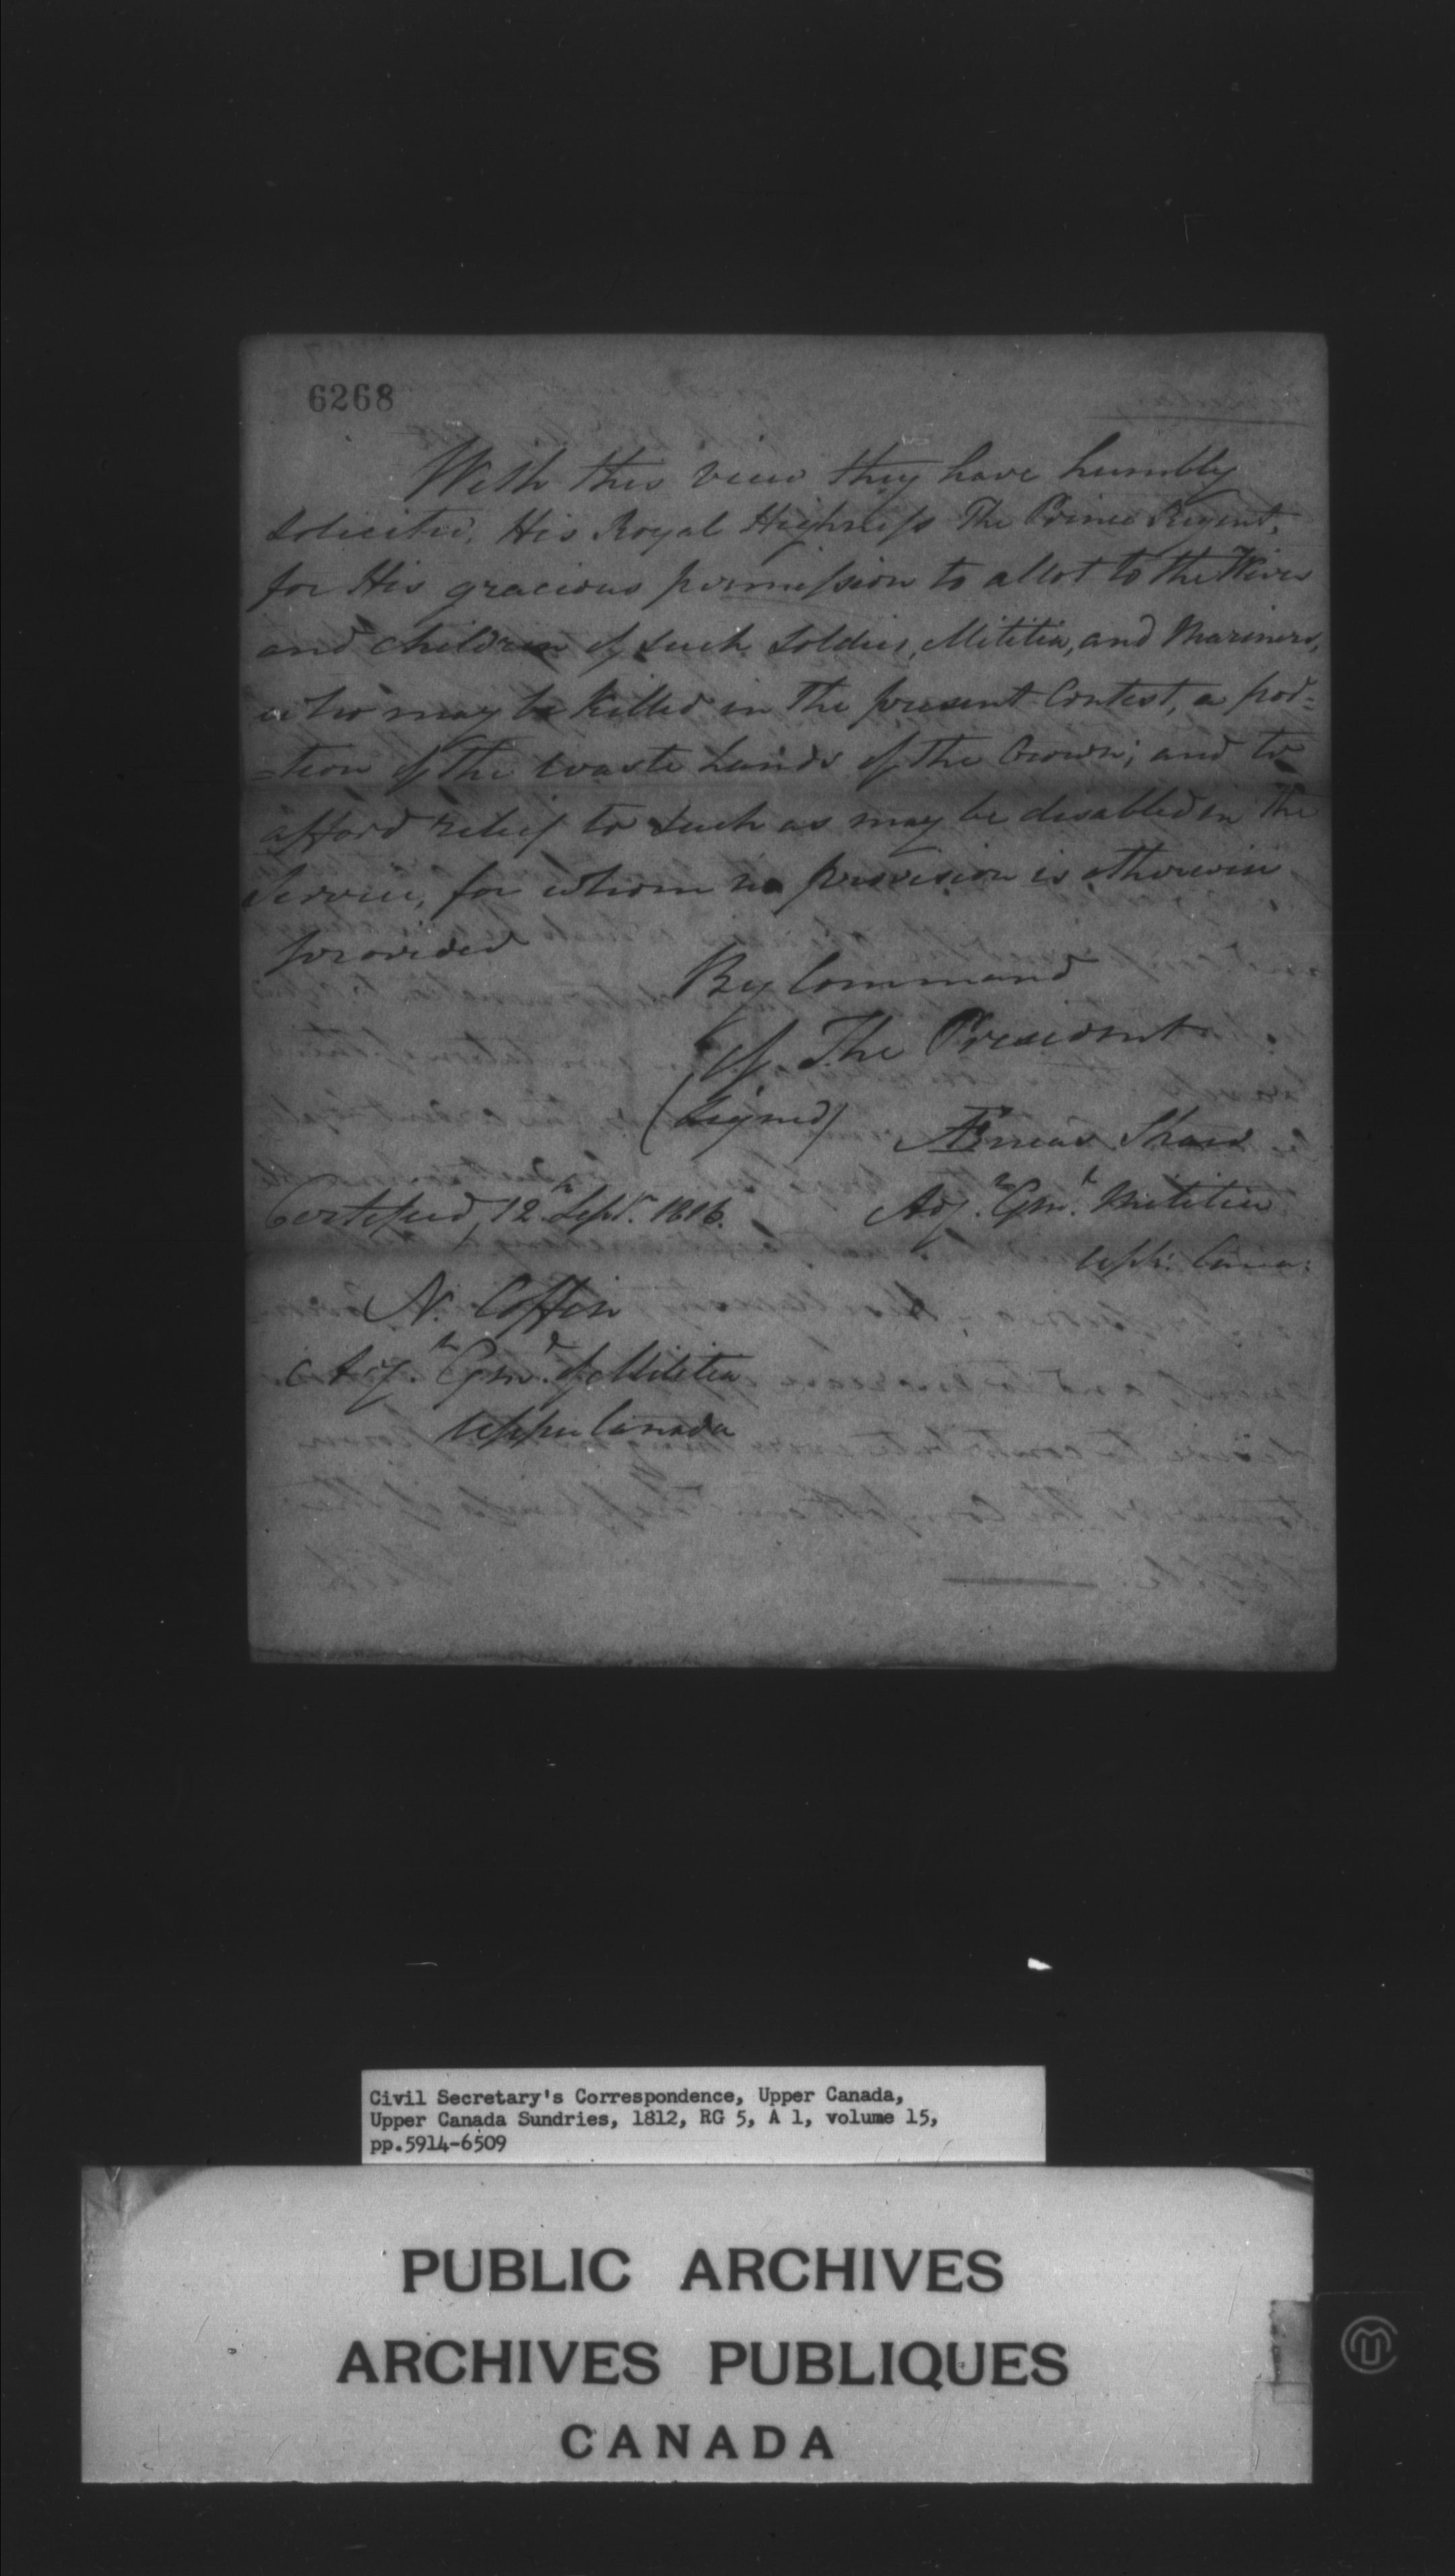 6268
With this view they have humbly
solicited, His Royal Highness The Prince Regent,
for His gracious permission to allot to the Wives
and children of such Soldiers, Militia, and Mariners,
who may be killed in the present Contest, a por=
=tion of the waste Lands of the Crown; and to
afford relief to such as may be disabled in the
Service, for whom no provision is otherwise
provided
By Command
of The President
(Signed) Æneas Shaw
Adjᵗ. Genˡ. Militia
Certified, 12th Septr. 1816.
N. Coffin
Adjᵗ. Genˡ. of Militia
Upper Canada
Civil Secretary's Correspondence, Upper Canada,
Upper Canada Sundries, 1812, RG 5, A 1, volume 15,
pp.5914-6509
PUBLIC ARCHIVES
ARCHIVES PUBLIQUES
CANADA